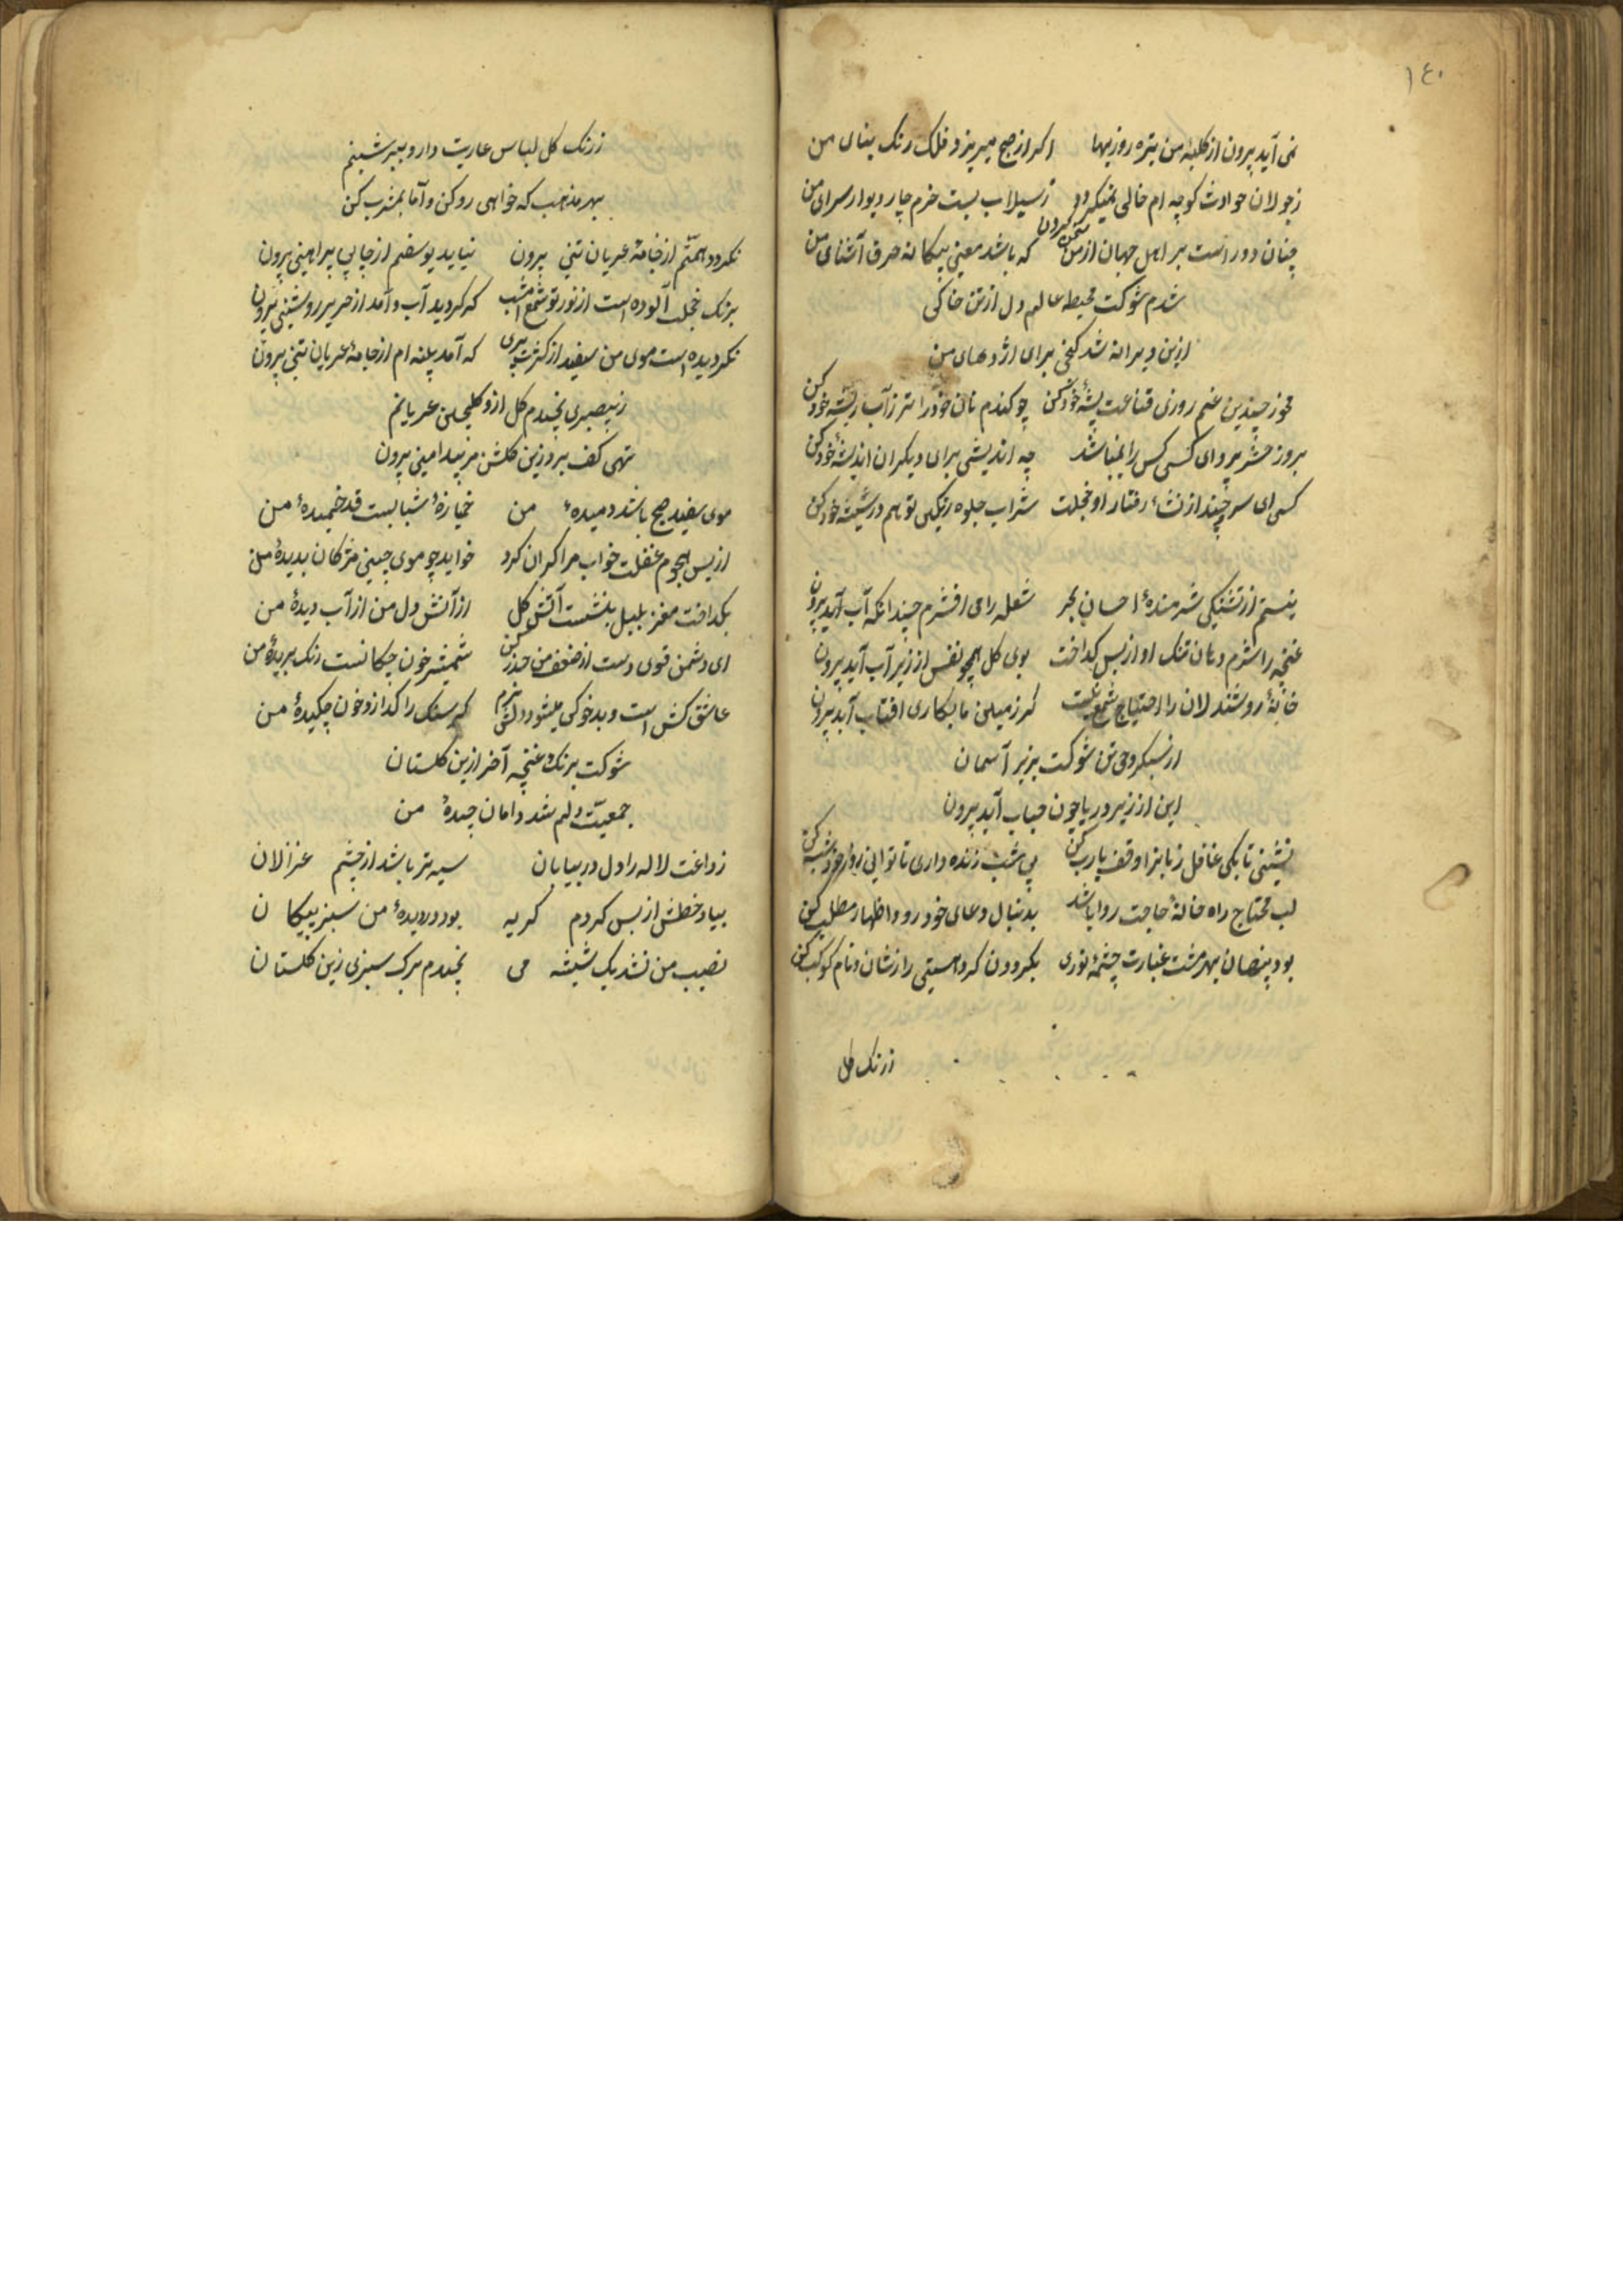 ١٤٠
نمی آید برون از کلبهٔ من تیره روزیها اکر از صبح میریزد فلک رنک بنای من
ز جولان حوادث کوچه ام خالی نمیکردد ز سیلاب بست خرم چار دیوار سرای من
چنان دور است بر اهل جهان از من سخن کردن که باشد معنی بیکانه حرف آشنای من
شدم شوکت محیط عالم دل از تن خاکی
ازین ویرانه شد کنجی برای اژدهای من
مخور چندین غم روزی قناعت پیشهٔ خود کن چو کندم نان خود را تر ز آب ریشهٔ خود کن
بروز حشر پروای کسی کس را نمیباشد چه اندیشی برای دیکران اندیشهٔ خود کن
کسی ای سرو چند از نشاٴ رفتار او خجلت شراب جلوه رنکی تو هم در شیشهٔ خود کن
نیستم از تشنکی شرمندهٔ احسان بحر شعله را می افشرم چندانکه آب آید برون
غنچه را شرم دهان تنک او از بس کداخت بوی کل همچو نفس از زیر آب آید برون
خانهٔ روشندلان را احتیاج شمع نیست کر زمین کاری افتاب آید برون
از سبکروحی تن شوکت بزیر آسمان
این از زیر دریا چون حباب آید برون
نشینی تا بکی غافل زبانرا وقف یارب کن پی شب زنده داری تا توانی روز خود شب کن
لب محتاج راه خانهٔ حاجت روا باشد بدنبال دعای خود رو و اظهار مطلب کن
بود پنهان بهر مشت غبارت چشمهٔ نوری بکردون کرد هستی را نشان و نام کوکب کن
ز رنک کل
ز رنک کل لباس عاریت دارد ببر شبنم
بهر مذهب که خواهی رو کن و آما بمشرب کن
نکردد همتم از جامهٔ عریان تنی برون نیاید یوسفم از چاه بی پیراهنی برون
برنک خجلت آلوده است از نور تو شمع امشب که کردید آب و آمد از حریر روشنی برون
نکردیده است موی من سفید از کثرت پیری که آمد پنبه ام از جامهٔ عریان تنی برون
ز بیصبری نچیدم کل ازو کلچین عریانم
تهی کف میروم زین کلشن بیدامنی برون
موی سفید صبح باشد دمیدهٔ من خمیازهٔ شبابست قد خمیدهٔ من
از بس هجوم غفلت خواب مرا کران کرد خوابد چو موی چینی مژکان بدیدهٔ من
بکداخت مغز بلبل بنشست آتش کل از آتش دل من از آب دیدهٔ من
ای دشمن قوی دست از ضعف من حذر کن شمشیر خون چکانست رنک بریدهٔ من
عاشق کش است و بدخو کی میشود دلش نرم کر سنک را کدازد خون چکیدهٔ من
شوکت برنک غنچه آخر ازین کلستان
جمعیت دلم شد دامان چیدهٔ من
ز داغت لاله را دل در بیابان سیه تر باشد از چشم غزالان
بیاد خطش از بس کردم کریه بود در دیدهٔ من سبز پیکان
نصیب من نشد یک شیشه می نچیدم برک سبزی زین کلستان